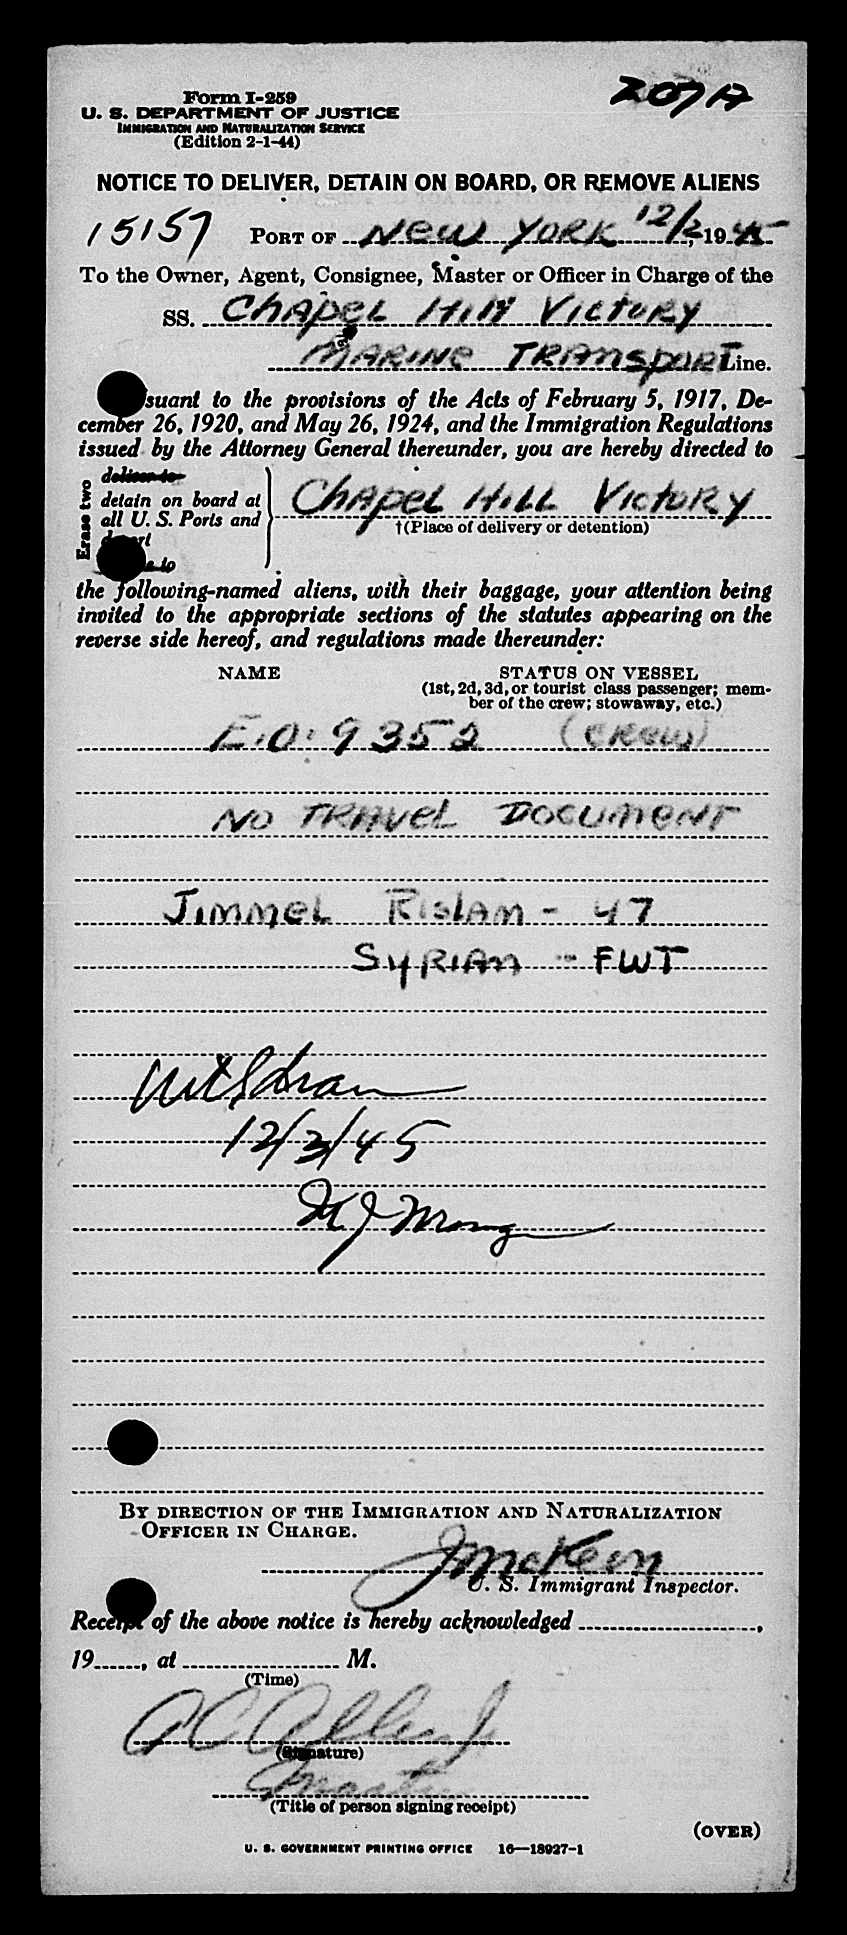 Form I-259
2071A
U. S. DEPARTMENT OF JUSTICE
IMMIGRATION AND NATURALIZATION SERVICE
(Edition 2-1-44)
NOTICE TO DELIVER, DETAIN ON BOARD, OR REMOVE ALIENS
15157 PORT OF NEW YORK 12/2, 1945
To the Owner, Agent, Consignee, Master or Officer in Charge of the
SS. CHAPEL HILL VICTORY
MARINE TRANSPORT Line.
suant to the provisions of the Acts of February 5, 1917, De-
cember 26, 1920, and May 26, 1924, and the Immigration Regulations
issued by the Attorney General thereunder, you are hereby directed to
Erase two
deliver to
detain on board at
all U. S. Ports and
CHAPEL HILL VICTORY
†(Place of delivery or detention)
to
the following-named aliens, with their baggage, your attention being
invited to the appropriate sections of the statutes appearing on the
reverse side hereof, and regulations made thereunder:
NAME STATUS ON VESSEL
(1st, 2d, 3d, or tourist class passenger; mem-
ber of the crew; stowaway, etc.)
E.O. 9352 (CREW)
NO TRAVEL DOCUMENT
JIMMEL RISLAM - 47
SYRIAN - FWT
12/3/45
BY DIRECTION OF THE IMMIGRATION AND NATURALIZATION
OFFICER IN CHARGE.
J McKeon
U. S. Immigrant Inspector.
Receipt of the above notice is hereby acknowledged ,
19 , at M.
(Time)
(Signature)
Master
(Title of person signing receipt)
(OVER)
U. S. GOVERNMENT PRINTING OFFICE 16—18927-1